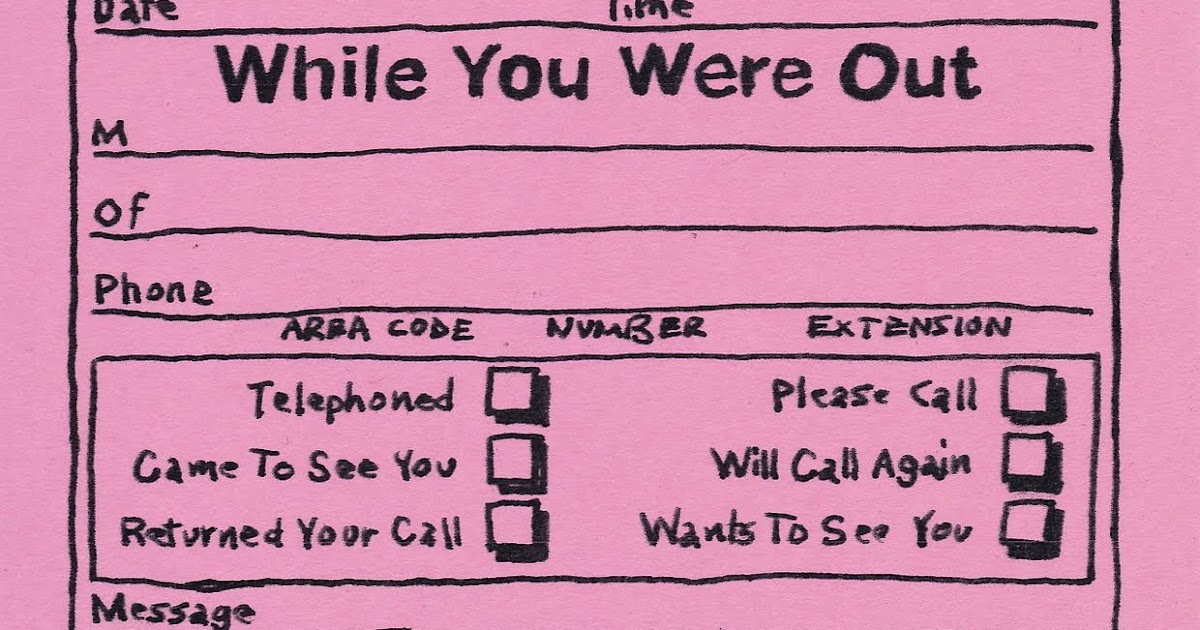 Date Time
While You Were Out
M
Of
Phone
AREA CODE NUMBER EXTENSION
Telephoned Please Call
Came To See You Will Call Again
Returned Your Call Wants To See You
Message